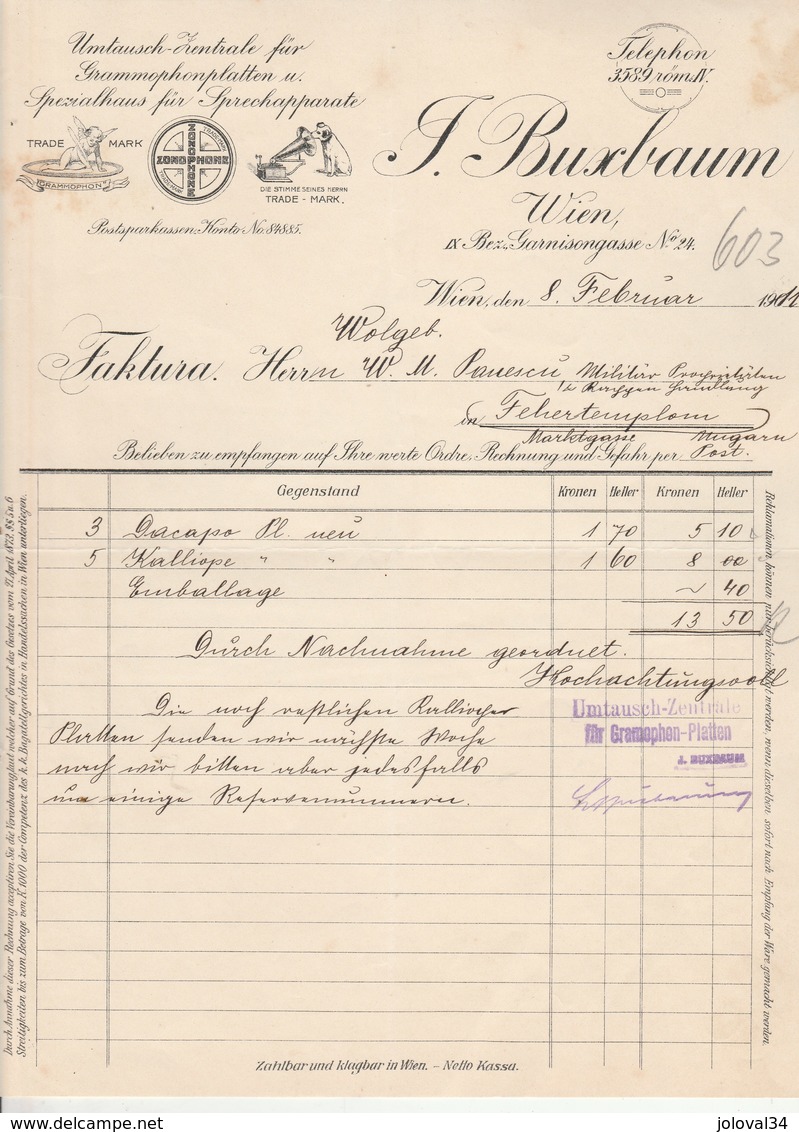 Umtausch-Zentrale für
Grammophonplatten u.
Spezialhaus für Sprechapparate
TRADE MARK
GRAMMOPHON
ZONOPHONE
ZONOPHONE
TRADE MARK
DIE STIMME SEINES HERRN
TRADE - MARK.
Postsparkassen-Konto No. 84885.
Telephon
3589 röm. IV.
J. Buxbaum
Wien,
IX Bez., Garnisongasse No 24.
603
Wien, den 8. Februar 19
Wolgeb.
Faktura. Herrn W. M. Panescu Militär
Handlung
in Fehertemplom
Marktgasse Ungarn
Belieben zu empfangen auf Ihre werte Ordre, Rechnung und Gefahr per Post.
Gegenstand Kronen Heller Kronen Heller
3 Dacapo Pl. neu 1 70 5 10
5 Kalliope " " 1 60 8 00
Emballage ~ 40
13 50
Durch Nachnahme geordnet.
Hochachtungsvoll
Die noch restlichen Kalliope
Platten senden wir nächste Woche
nach wir bitten aber jedesfalls
um einige Reservenummern.
Umtausch-Zentrale
für Gramophon-Platten
J. BUXBAUM
Durch Annahme dieser Rechnung acceptiren Sie die Vereinbarung laut welcher auf Grund des Gesetzes vom 27. April 1873, §§ 5 u. 6
Streitigkeiten bis zum Betrage von K 1000 der Competenz des k. k. Bagatellgerichtes in Handelssachen in Wien unterliegen.
Reklamationen können nur berücksichtigt werden, wenn dieselben sofort nach Empfang der Ware gemacht werden.
Zahlbar und klagbar in Wien. - Netto Kassa.
delcampe.net
joloval34